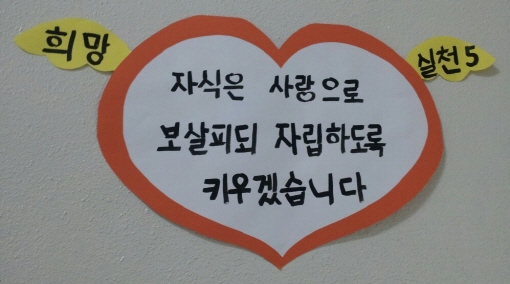 희망
실천 5
자식은 사랑으로
보살피되 자립하도록
키우겠습니다